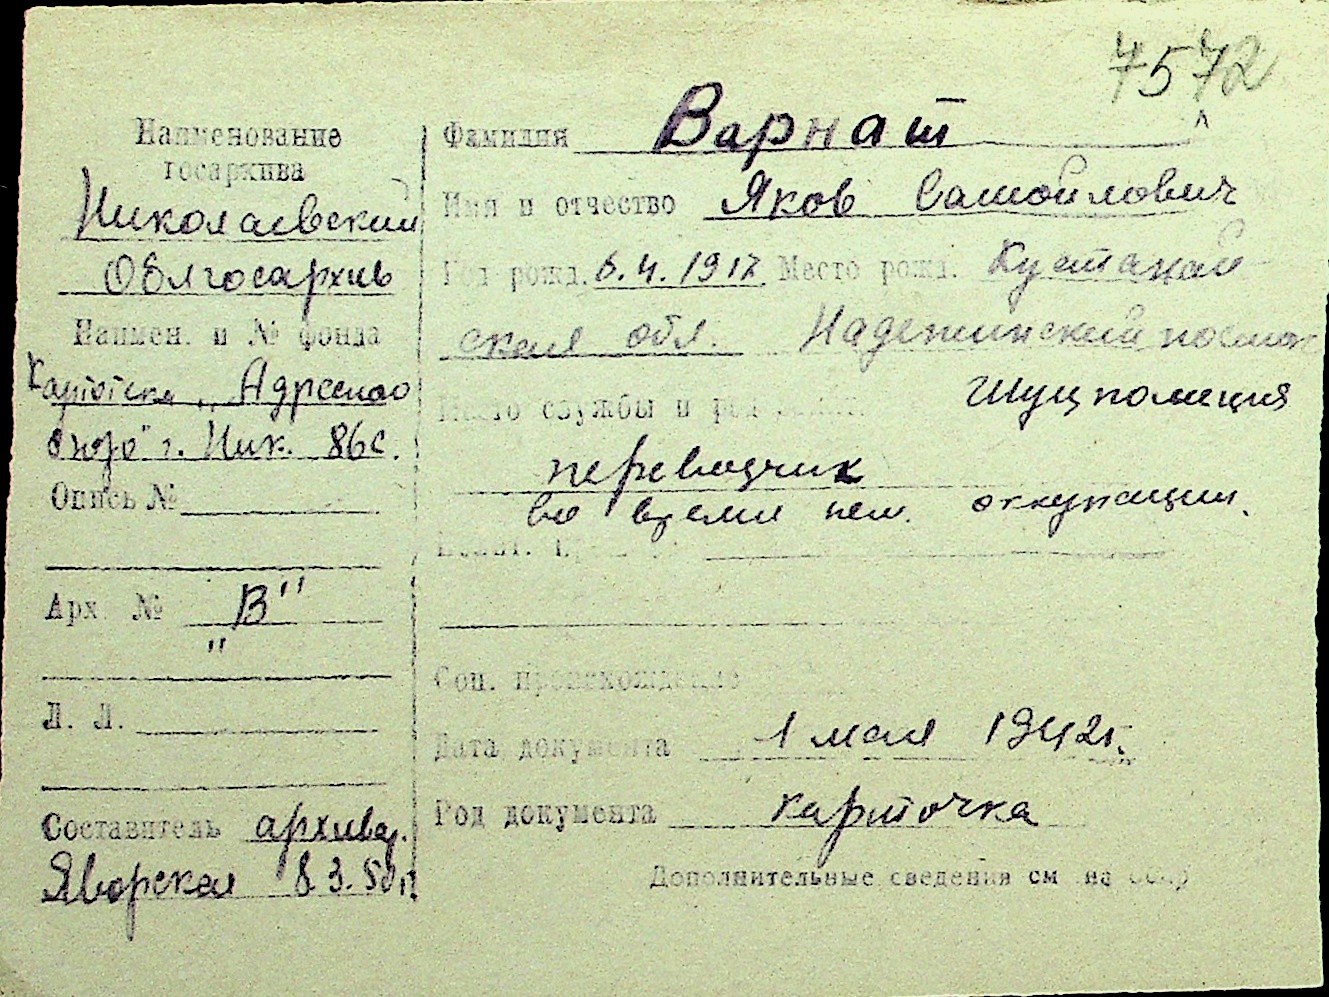 7572
Наименование
госархива
Николаевский
Облгосархив
Наимен. и № фонда
Картотека „Адресного
бюро" г. Ник. 86с.
Опись №
Арх №
„В"
Л. Л.
Составитель архивар.
Яворская 8.3.50г.
Фамилия Варнат
Имя и отчество Яков Самойлович
Год рожд. 6.4.1917. Место рожд. Кустанай
ская обл. Надежинский
Место службы и
Шуцполиция
переводчик
во время нем. оккупации.
Соц. происхождение
Дата документа 1 мая 1942г.
Род документа карточка
Дополнительные сведения см на обор